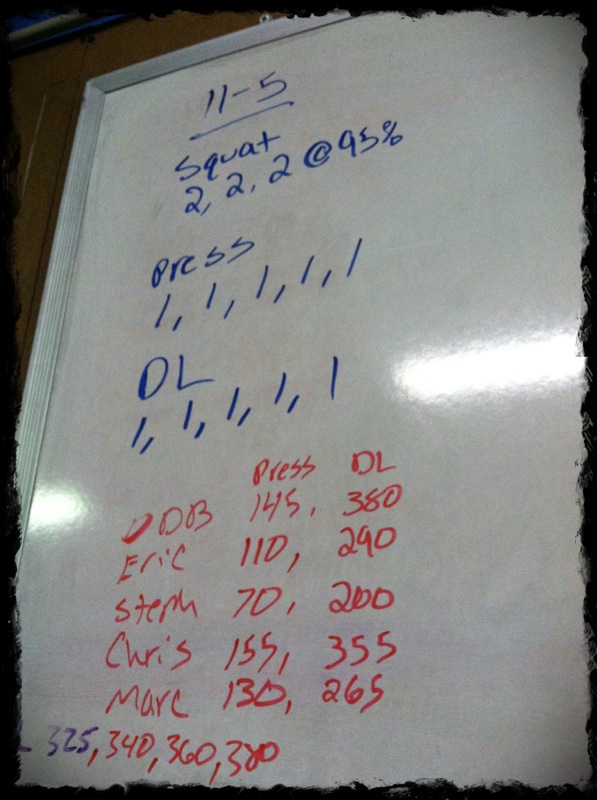 11-5
Squat
2, 2, 2 @ 95%
Press
1, 1, 1, 1, 1
DL
1, 1, 1, 1, 1
Press DL
DDB 145, 380
Eric 110, 290
Steph 70, 200
Chris 155, 355
Marc 130, 265
L 325, 340, 360, 380